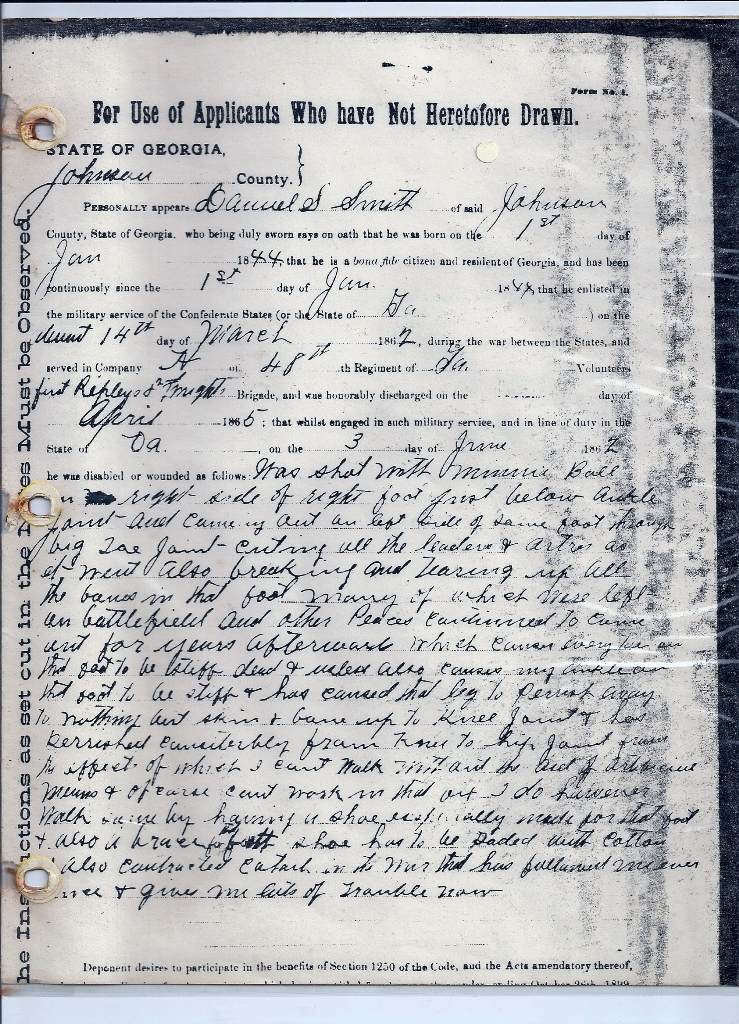 Form No. 1.
For Use of Applicants Who have Not Heretofore Drawn.
STATE OF GEORGIA,
Johnson County. }
PERSONALLY appears Daniel S Smith of said Johnson
County, State of Georgia, who being duly sworn says on oath that he was born on the 1st day of
Jan 1844, that he is a bona fide citizen and resident of Georgia, and has been
continuously since the 1st day of Jan. 1844, that he enlisted in
the military service of the Confederate States (or the State of Ga ) on the
14th day of March 1862, during the war between the States, and
served in Company A of 48th .th Regiment of Ga. Volunteers
first Brigade, and was honorably discharged on the day of
April 1865; that whilst engaged in such military service, and in line of duty in the
State of , on the 3 day of June 1862
he was disabled or wounded as follows: Was shot with minnie Ball
right side of right foot just below ankle
joint and coming out on left side of same foot through
big toe joint cuting all the leaders & as
it went also breaking and tearing up all
the bones in that foot many of which were left
on battlefield and other Peaces continued to come
out for years afterward which causes
that foot to be stiff dead & useless also causes my ankle on
that foot to be stiff & has caused that leg to away
to nothing but skin & bone up to Knee Joint & has
considerbly from knee to hip Joint from
the effects of which I cant walk without the aid of
means & of course cant work in that I do however
walk some by having a shoe made for that foot
& also a brace shoe has to be paded with cotton
also contracted in the war that has followed me ever
since & gives me lots of trouble now
Deponent desires to participate in the benefits of Section 1250 of the Code, and the Acts amendatory thereof,
he Ins ctions as set out in the es Must be Observed.